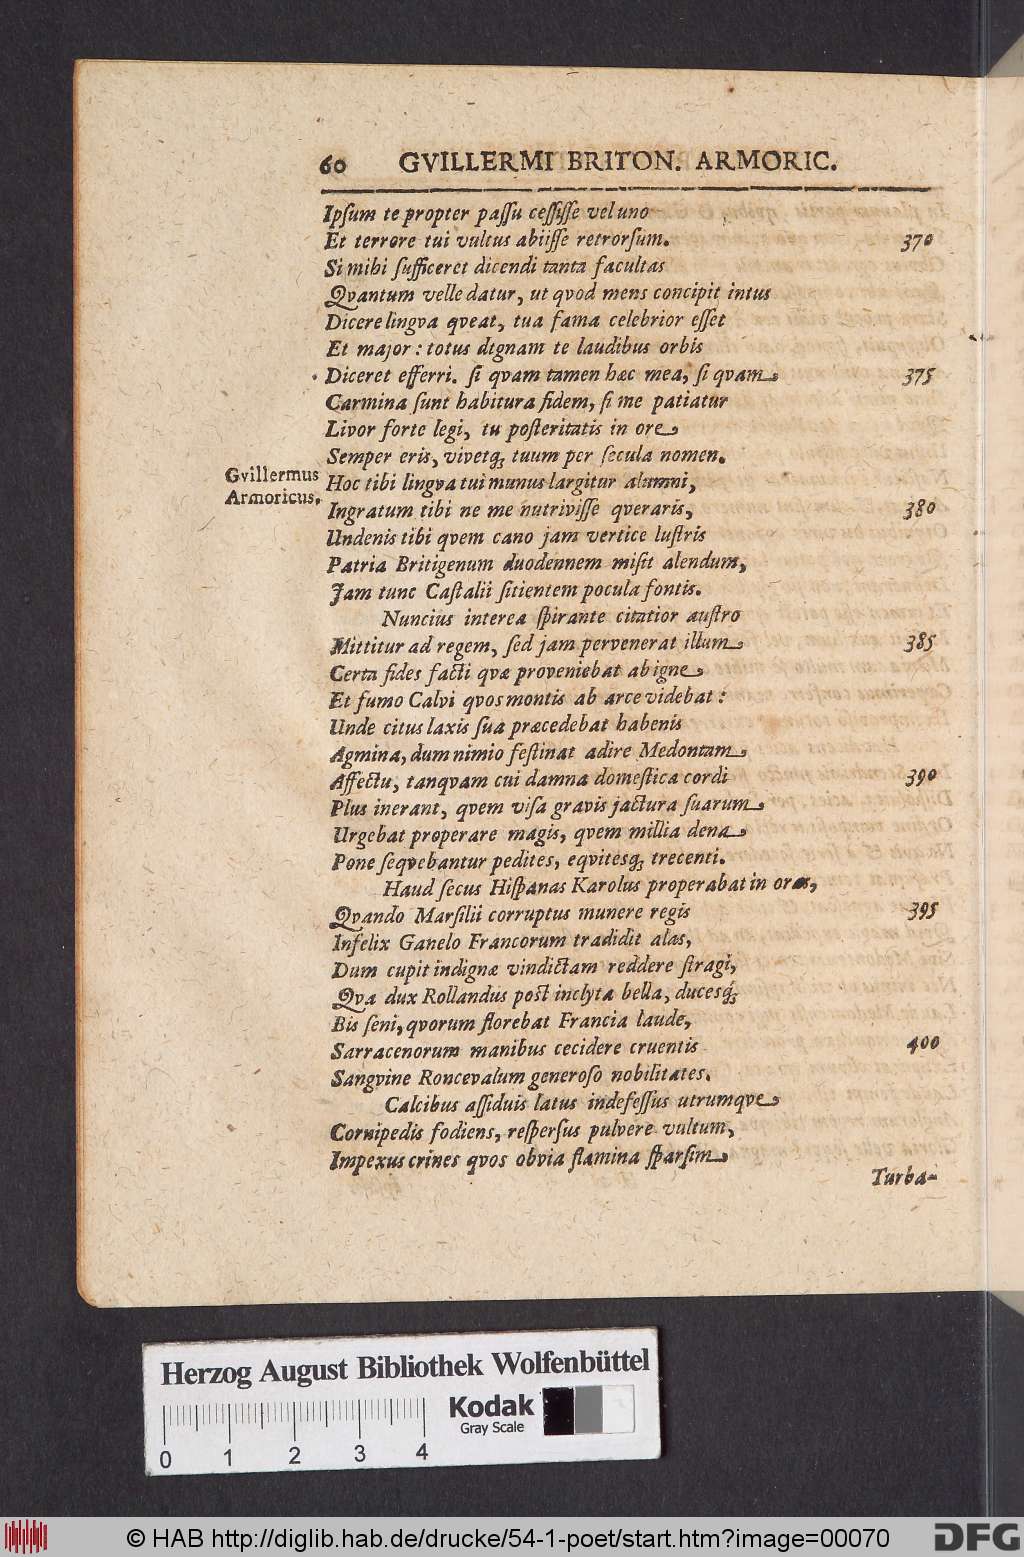 60 GVILLERMI BRITON. ARMORIC.
Ipſum te propter paſſu ceſſiſſe vel uno
Et terrore tui vultus abiiſſe retrorſum. 370
Si mihi ſufficeret dicendi tanta facultas
Qvantum velle datur, ut qvod mens concipit intus
Dicere lingva qveat, tua fama celebrior eſſet
Et major: totus dignam te laudibus orbis
Diceret efferri. ſi qvam tamen hæc mea, ſi qvam 375
Carmina ſunt habitura fidem, ſi me patiatur
Livor forte legi, tu poſteritatis in ore
Semper eris, vivetq; tuum per ſecula nomen.
Gvillermus Armoricus.
Hoc tibi lingva tui munus largitur alumni,
Ingratum tibi ne me nutriviſſe qveraris, 380
Undenis tibi qvem cano jam vertice luſtris
Patria Britigenum duodennem miſit alendum,
Jam tunc Caſtalii ſitientem pocula fontis.
Nuncius interea ſpirante citatior auſtro
Mittitur ad regem, ſed jam pervenerat illum 385
Certa fides facti qvæ proveniebat ab igne
Et fumo Calvi qvos montis ab arce videbat:
Unde citus laxis ſua præcedebat habenis
Agmina, dum nimio feſtinat adire Medontam
Affectu, tanqvam cui damna domeſtica cordi 390
Plus inerant, qvem viſa gravis jactura ſuarum
Urgebat properare magis, qvem millia dena
Pone ſeqvebantur pedites, eqvitesq; trecenti.
Haud ſecus Hiſpanas Karolus properabat in oras,
Qvando Marſilii corruptus munere regis 395
Infelix Ganelo Francorum tradidit alas,
Dum cupit indignæ vindictam reddere ſtragi,
Qva dux Rollandus poſt inclyta bella, ducesq́;
Bis ſeni, qvorum florebat Francia laude,
Sarracenorum manibus cecidere cruentis 400
Sangvine Roncevalum generoſo nobilitates.
Calcibus aſſiduis latus indefeſſus utrumqve
Cornipedis fodiens, reſperſus pulvere vultum,
Impexus crines qvos obvia flamina ſparſim
Turba-
Herzog August Bibliothek Wolfenbüttel
Kodak
Gray Scale
0 1 2 3 4
© HAB http://diglib.hab.de/drucke/54-1-poet/start.htm?image=00070
DFG